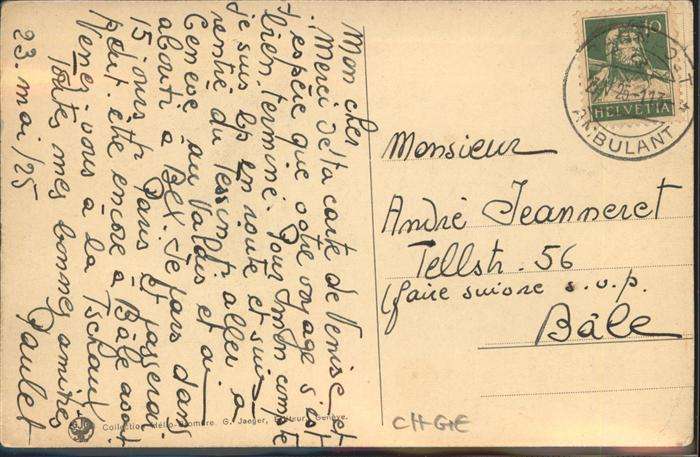 Mon cher
Merci de ta carte de Venise et
j'espère que votre voyage s'est
bien terminé. Pour mon compte
je suis bp en route et suis
rentré du Tessin p. aller à
Genève au Valais et ai
abouti à Bex. Je pars dans
15 jours p. Paris et passerai
peut être encore à Bâle avant
Venez-vous à la Tschaux
Toutes mes bonnes amitiés
Paulet
23. mai /25
10
HELVETIA
AMBULANT
Monsieur
André Jeanneret
Tellstr. 56
(faire suivre s.v.p.
Bâle
Collection Hélio-Bromure. G. Jaeger, Editeur, Genève.
CH-GE